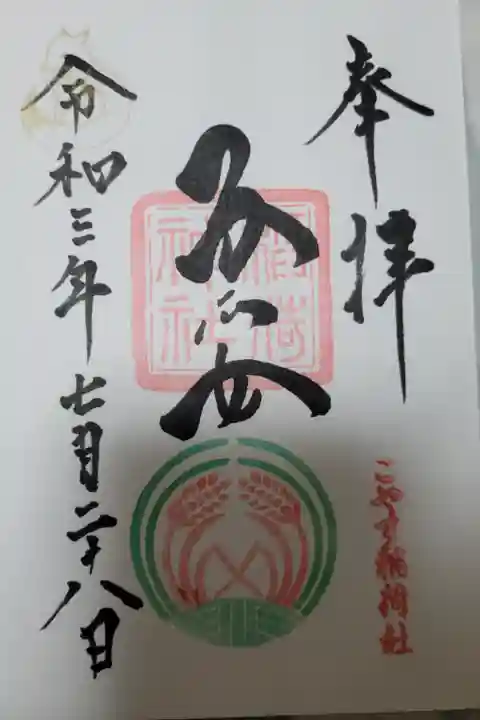 奉拝
こやす稲荷社
子安
稲荷
神社
令和三年七月二十八日